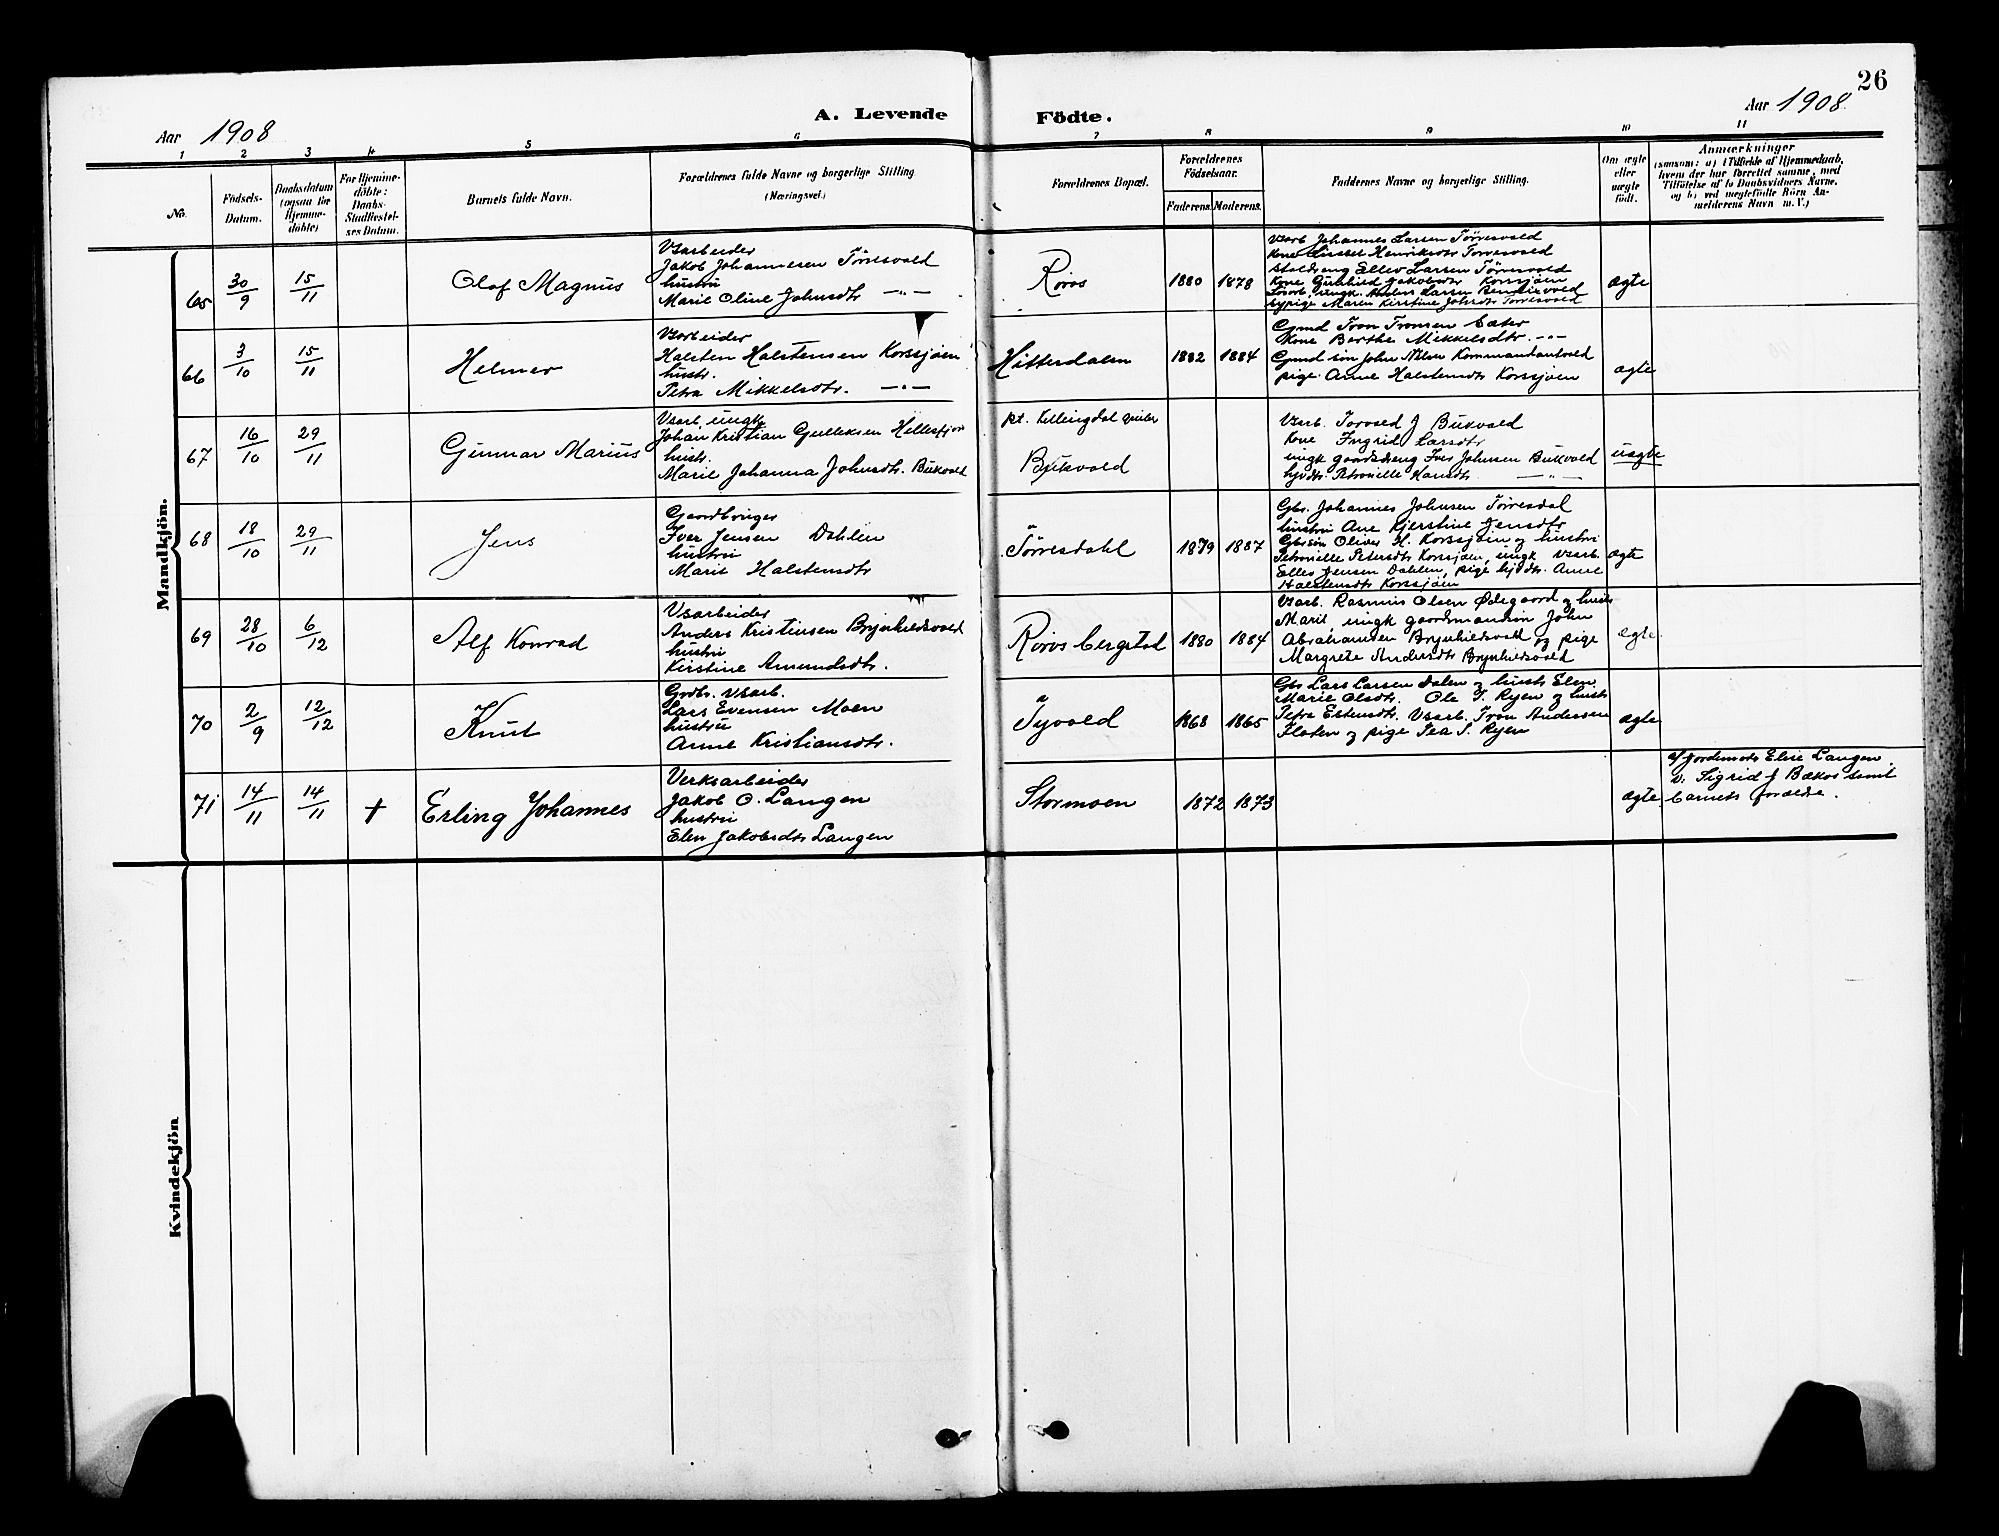 26
A. Levende Födte.
Aar 1908
Aar 1908
1 2 3 4 5 6 7 8 9 10 11
No.
Födsels-Datum.
Daabsdatum (ogsaa for Hjemme-døbte)
For Hjemme-døbte: Daabs-Stadfæstel-ses Datum.
Barnets fulde Navn.
Forældrenes fulde Navne og borgerlige Stilling
(Næringsvei.)
Forældrenes Bopæl.
Forældrenes Födselsaar.
Faderens. Moderens.
Faddernes Navne og borgerlige Stilling.
Om ægte eller uægte født.
Anmærkninger
(saasom: a) i Tilfælde af Hjemmedaab,
hvem der har forrettet samme, med
Tilföielse af to Daabsvidners Navne,
og b) ved uægtefödte Börn An-
melderens Navn m. V.)
Mandkjön.
65 30/9 15/11 Olaf Magnus
Vsarbeider
Jakob Johannesen Törresvold
hustru
Marie Oline Johnsdtr —"—
Röros 1880 1878
Vsarb Johannes Larsen Törresvold
Kone Sissel Henriksdtr Torresvold
staldreng Ellev Larsen Törresvold
Kone Gunhild Jakobsdtr Korssjöen
Vsarb. ungk. Anders Larsen Bendixvold
sypige Maren Kirstine Johsdtr Torresvold
ægte
66 3/10 15/11 Helmer
Vsarbeider
Halsten Halstensen Korssjøen
hustr.
Petra Mikkelsdtr. —"—
Hitterdalen 1882 1884
Gmd Tron Tronsen Sæter
Kone Berthe Mikkelsdtr. —"—
Gmd sön John Nilsen Kommandantvold
pige Anne Halstensdtr Korssjøen
ægte
67 16/10 29/11 Gunnar Marius
Vsarb. ungk
Johan Kristian Gulleksen Hellesfjor
hustr.
Marie Johanna Johnsdtr. Bukvold
pt. Killingdal gruber
Bukvold
Vsarb. Torvald J Bukvold
Kone Ingrid Larsdtr
ungk gaardsdreng Iver Johnsen Bukvold
hjdtr. Petronille Hansdtr —"—
uægte
68 18/10 29/11 Jens
Gaardbruger
Iver Jensen Dahlen
hustru
Marit Halstensdtr
Törresdahl 1879 1887
Gbr. Johannes Johnsen Törresdal
hustru Ane Kjerstine Jensdtr
Gbrsön Oliver H. Korssjøen og hustru
Petronille Petersdtr Korssjøen, ungk vsarb.
Ellev Jensen Dahlen, pige hjdtr. Anne
Halstensdtr Korssjøen
ægte
69 28/10 6/12 Alf Konrad
Vsarbeider
Anders Kristensen Brynhildsvold
hustru
Kirstine Amundsdtr.
Röros bergstad 1880 1884
Vsarb. Rasmus Olsen Ødegaard og hustr
Marit, ungk gaardmandsön John
Abrahamsen Brynhildsvold og pige
Margrete Andersdtr Brynhildsvold
ægte
70 2/9 12/12 Knut
Grdbr. vsarb.
Lars Evensen Moen
hustru
Anne Kristiansdtr.
Tyvold 1868 1865
Gbr Lars Larsen Dalen og hustr Elen
Marie Olsdtr. Ole T. Ryen og hustr
Petra Estensdtr. Vsarb. Tron Andersen
Floten og pige Tea T. Ryen
ægte
71 14/11 14/11 + Erling Johannes
Verksarbeider
Jakob O. Langen
hustru
Elen Jakobsdtr Langen
Stormoen 1872 1873
ægte
af jordemoder Elise Langen
v. Sigrid J Bækos samt
barnets forældre.
Kvindekjön